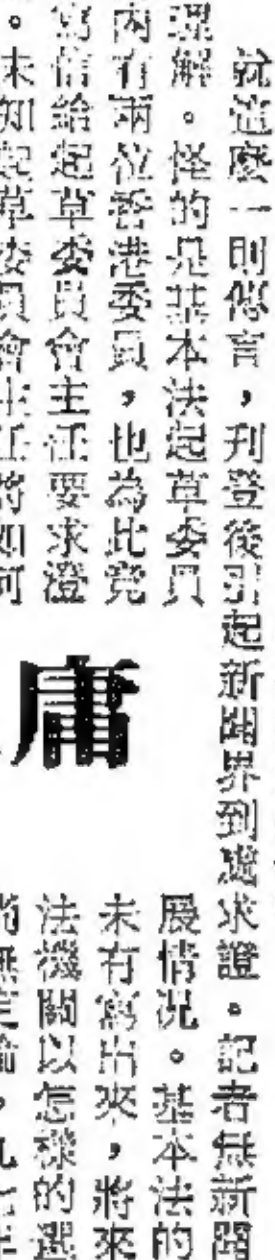 就這麼一則傳言，刊登後引起新聞界到處求證。記者無新聞
理解。怪的是基本法起草委員
內有兩位香港委員，也為此竟
寫信給起草委員會主任要求澄
。未知起草委員會主任將如何
庸
展情況。基本法的
未有寫出來，將來
法機關以怎樣的選
無定論，九七